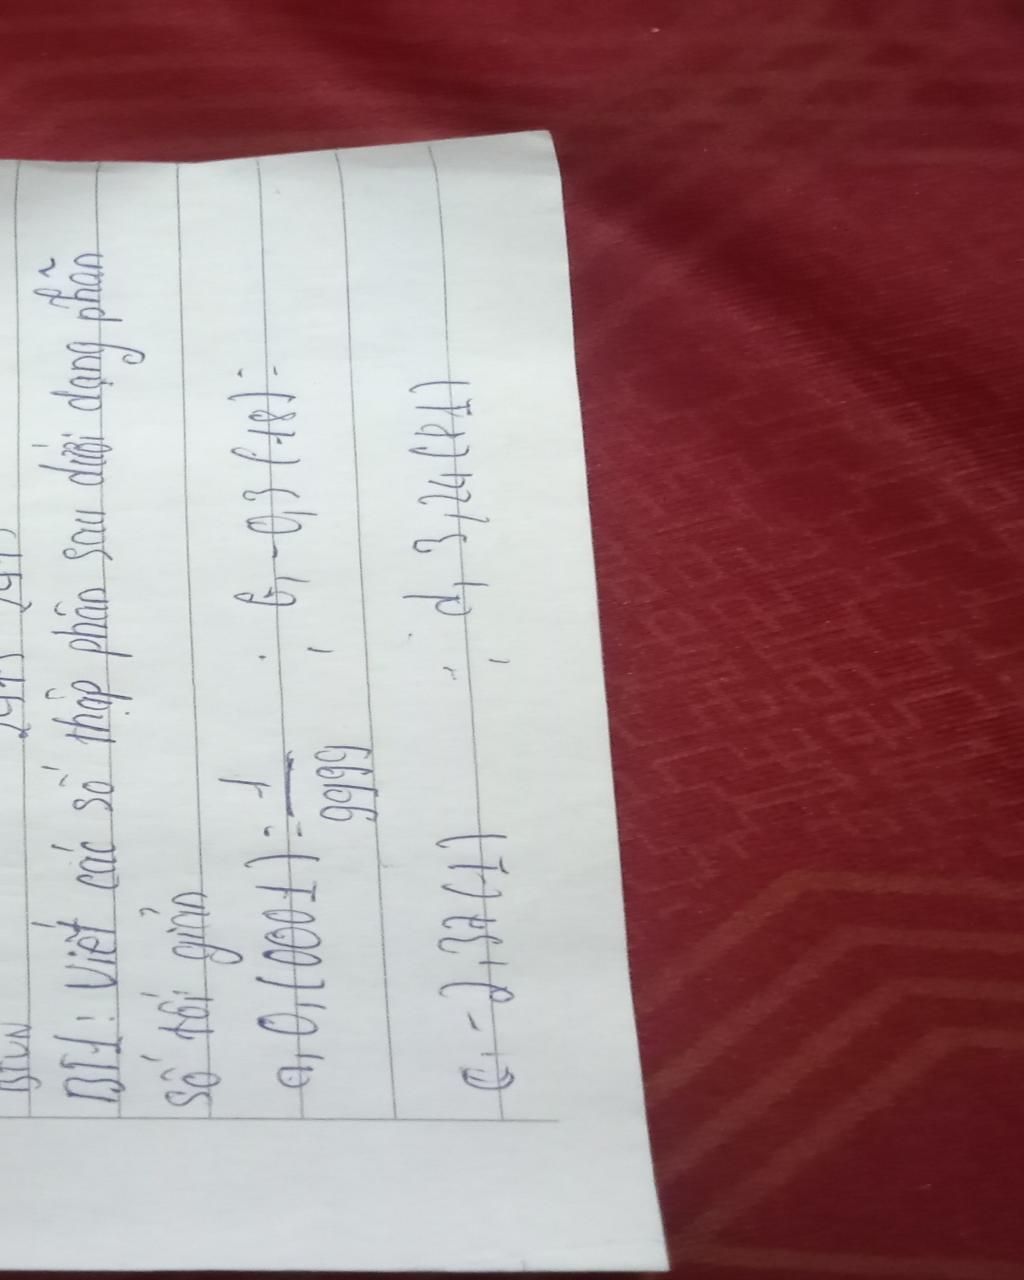 BTVN
BT1: Viết các số thập phân sau dưới dạng phân
số tối giản
a, 0,(0001) = 1/9999 b, -0,3(18) =
c, -2,37(1) d, 3,24(21)